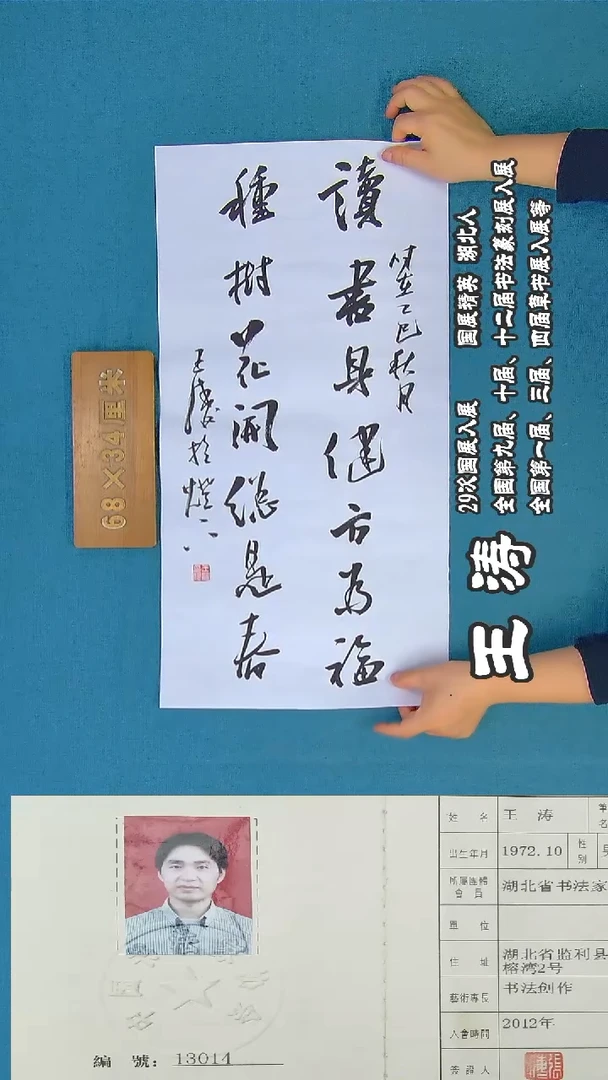 讀書身健方為福
種樹花開總是春
歲在乙巳秋月
王濤於燈下
68×34厘米
王涛
29次国展入展 国展精英 湖北人
全国第九届、十届、十二届书法篆刻展入展
全国第一届、三届、四届草书展入展等
姓名 王涛
出生年月 1972.10 性别
所屬團體會員 湖北省书法家
單位
住址 湖北省监利县
榕湾2号
藝術專長 书法创作
入會時間 2012年
簽證人
編號：13014